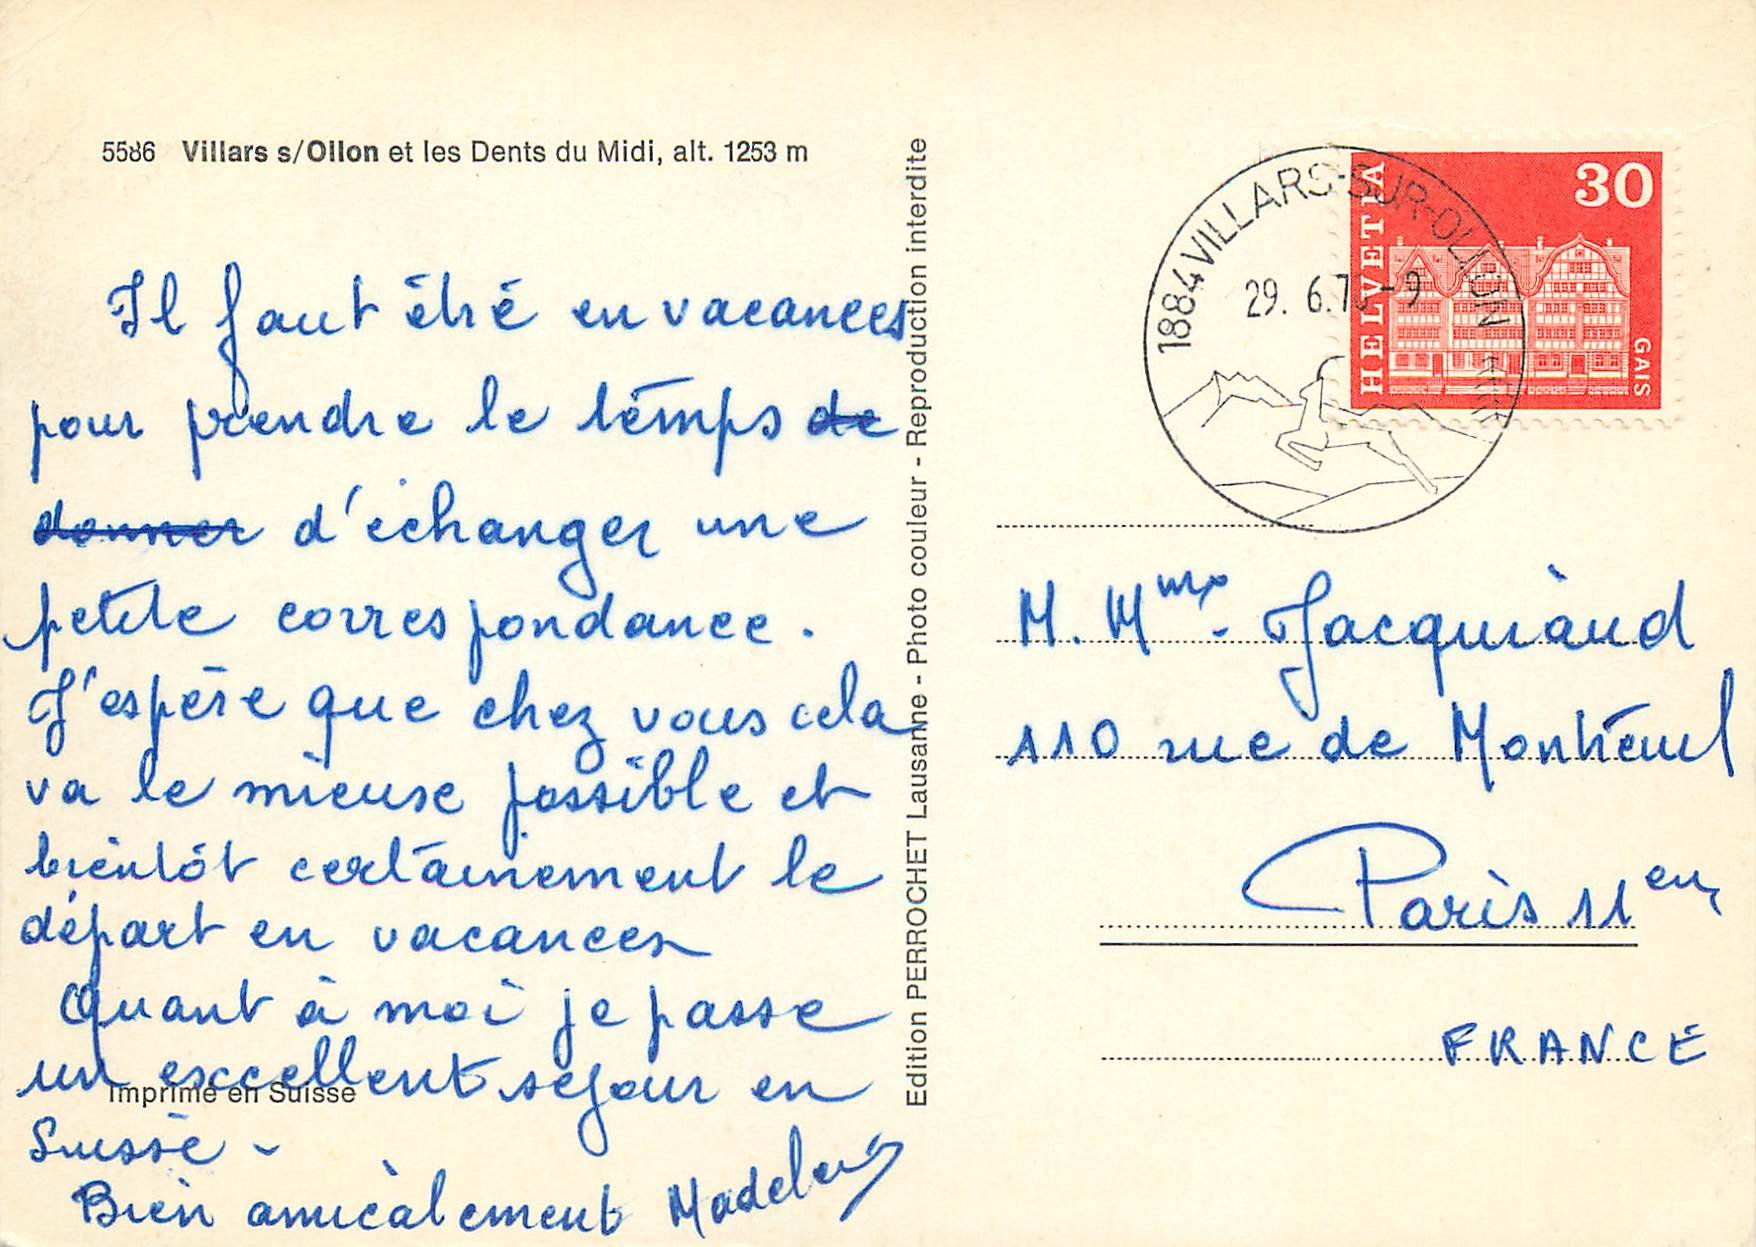 5586 Villars s/Ollon et les Dents du Midi, alt. 1253 m
Il faut être en vacances
pour prendre le temps de
donner d'échanger une
petite correspondance.
J'espère que chez vous cela
va le mieux possible et
bientôt certainement le
départ en vacances
Quant à moi je passe
un excellent séjour en
Suisse -
Bien amicalement Madeleine
Imprimé en Suisse
Edition PERROCHET Lausanne - Photo couleur - Reproduction interdite
1884 VILLARS-SUR-OLLON
29. 6.7 -9
HELVETIA
30
GAIS
M. Mme. Jacquiaud
110 rue de Montreuil
Paris 11em
FRANCE